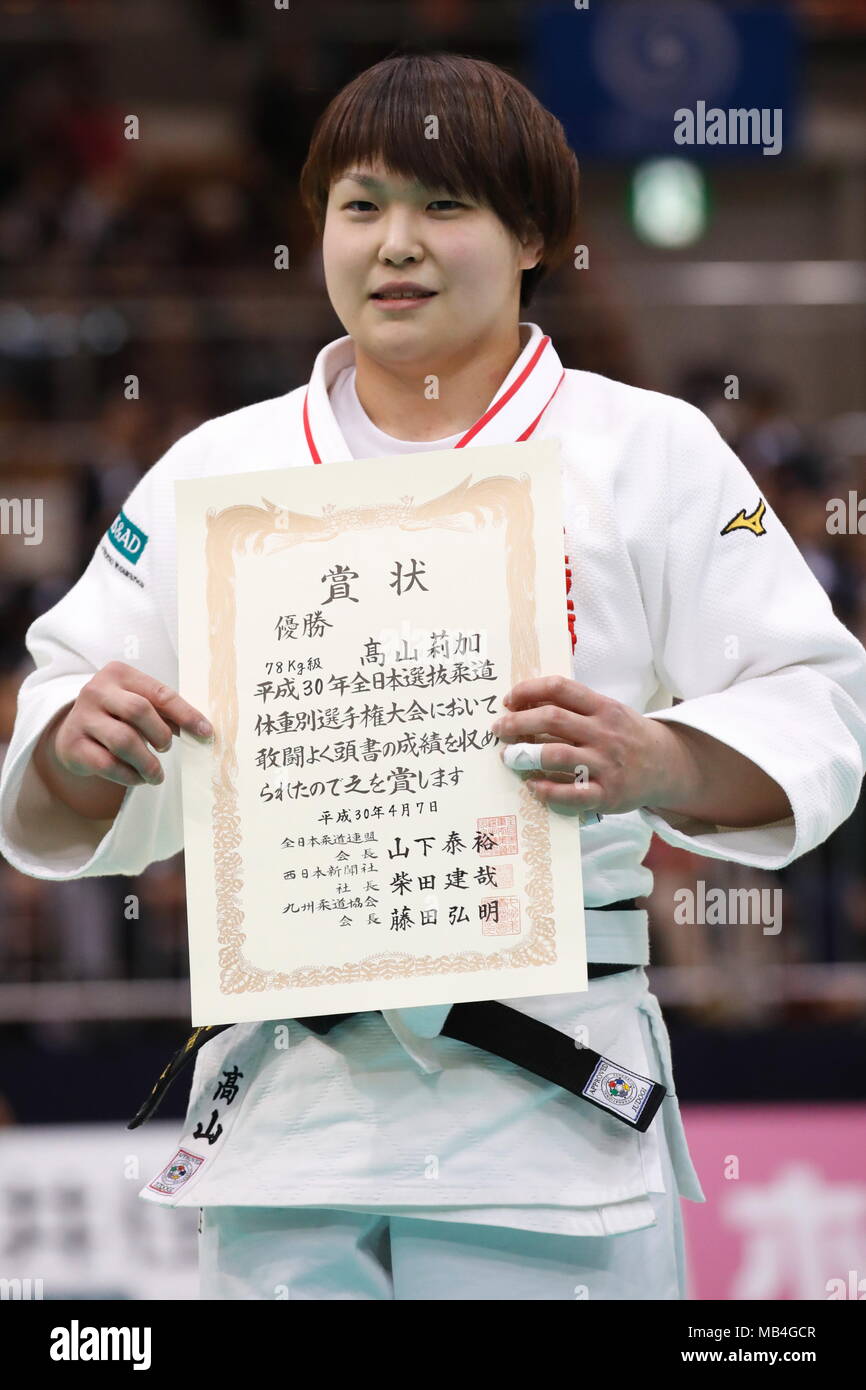 賞状
優勝
78Kg級 髙山莉加
平成30年全日本選抜柔道
体重別選手権大会において
敢闘よく頭書の成績を収め
られたので之を賞します
平成30年4月7日
全日本柔道連盟
会長 山下泰裕
西日本新聞社
社長 柴田建哉
九州柔道協会
会長 藤田弘明
&AD
髙山
APPROVED
JUDOGI
alamy
alamy stock photo
MB4GCR
www.alamy.com